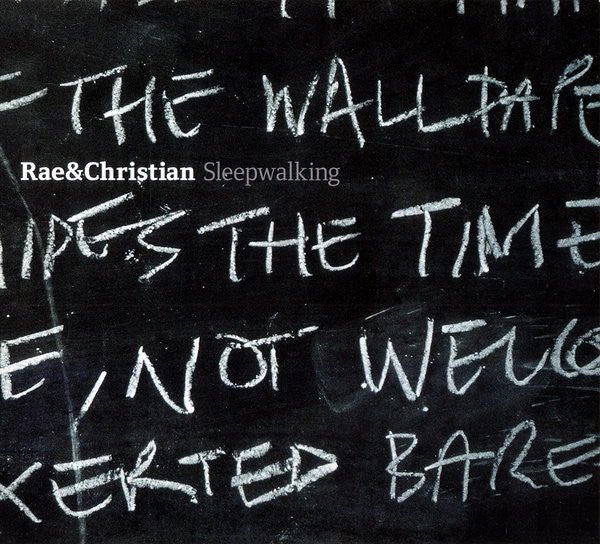 THE WALLPAPE
Rae&Christian Sleepwalking
IPES THE TIME
E, NOT WELCO
XERTED BARE